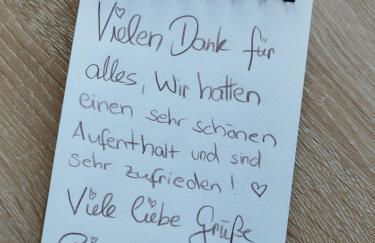 Vielen Dank für
alles, Wir hatten
einen sehr schönen
Aufenthalt und sind
sehr zufrieden! ♡
Viele liebe Grüße